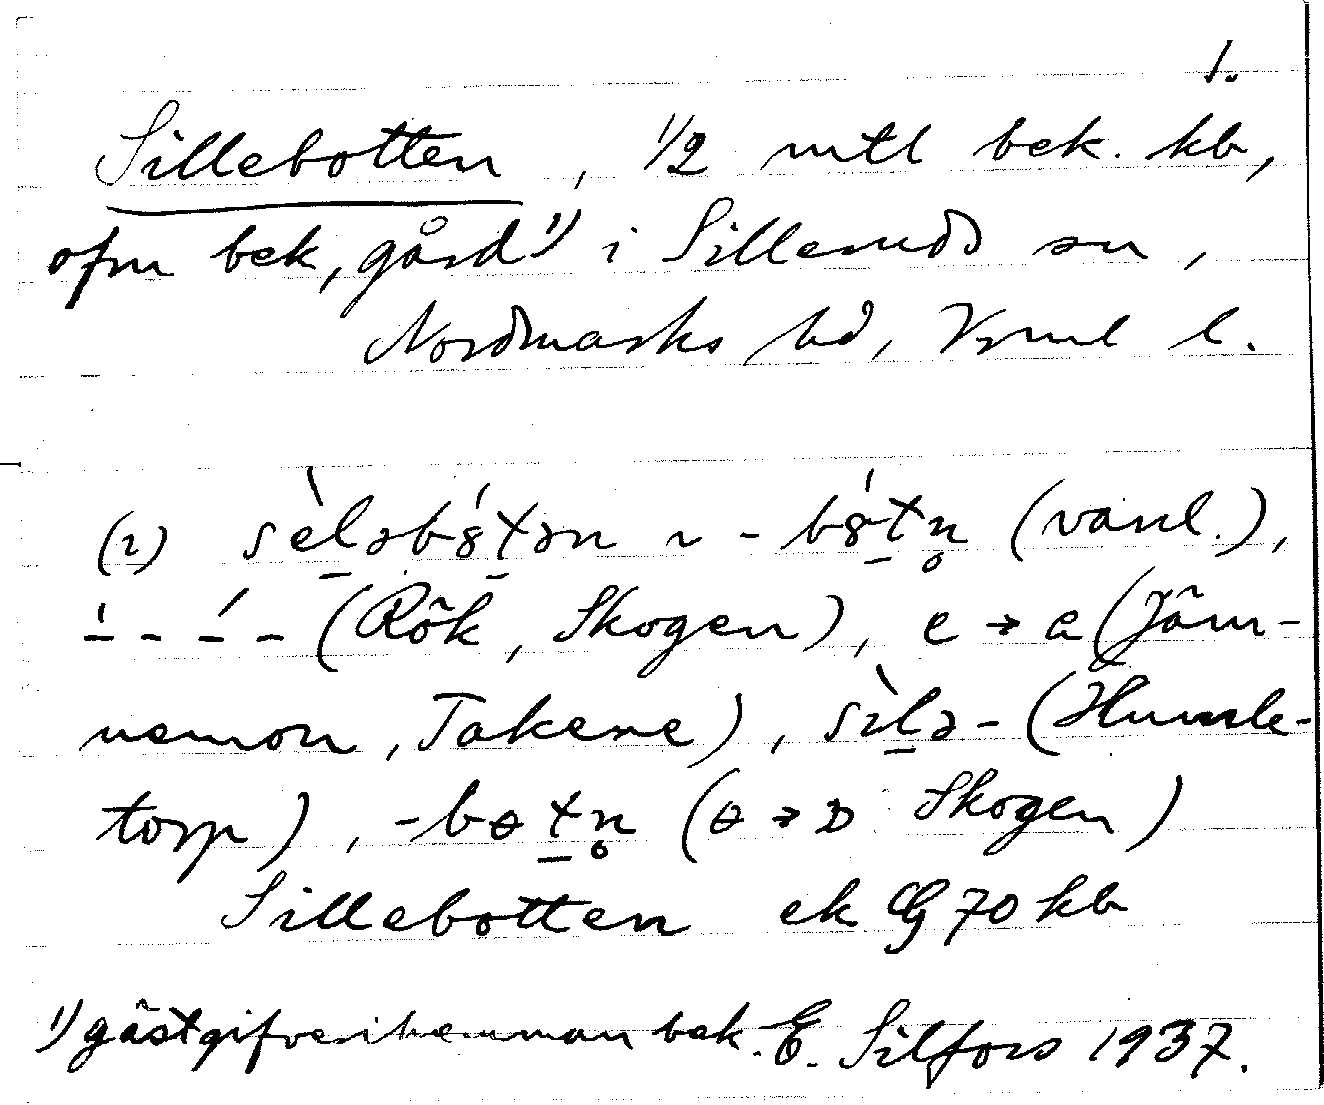 1.
Sillebotten, 1/2 mtl bek. kb,
ofm bek, gård 1) i Silleruds sn,
Nordmarks hd, Vrml l.
(2) sèləbśtən ~ -bśtn̥ (vanl.),
(Rök, Skogen), e → a (Jäm-
nemon, Takene), sìlə- (Humle-
torp), -bɵtn̥ (ɵ → Skogen)
Sillebotten ek G 70 kb
1) gästgifverihemman bek. E. Silfors 1937.